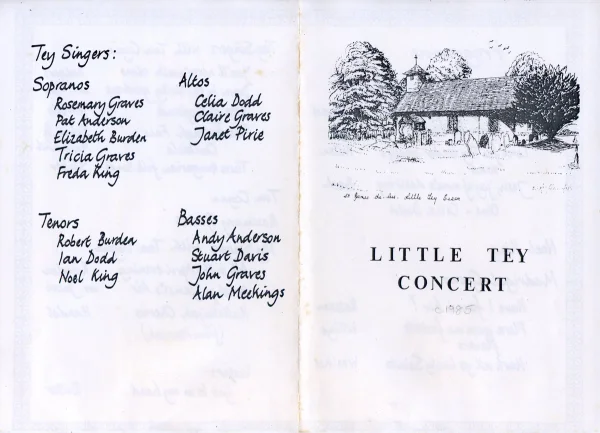 Tey Singers:
Sopranos
Rosemary Graves
Pat Anderson
Elizabeth Burden
Tricia Graves
Freda King
Altos
Celia Dodd
Claire Graves
Janet Pirie
Tenors
Robert Burden
Ian Dodd
Noel King
Basses
Andy Anderson
Stuart Davis
John Graves
Alan Meekings
St James Little Tey Essex
LITTLE TEY
CONCERT
c 1985